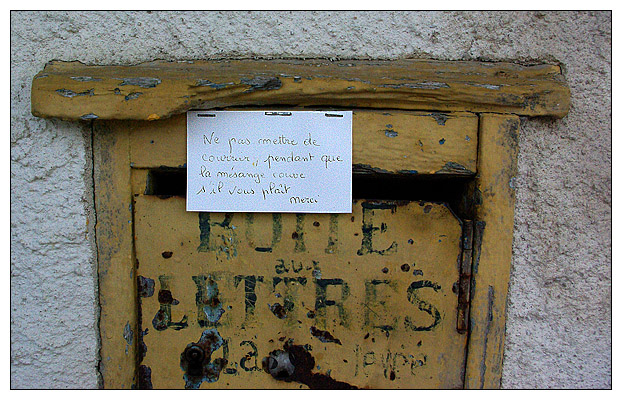 Ne pas mettre de
courrier,, pendant que
la mésange couve
s'il vous plaît
merci
BOITE
aux
LETTRES
La